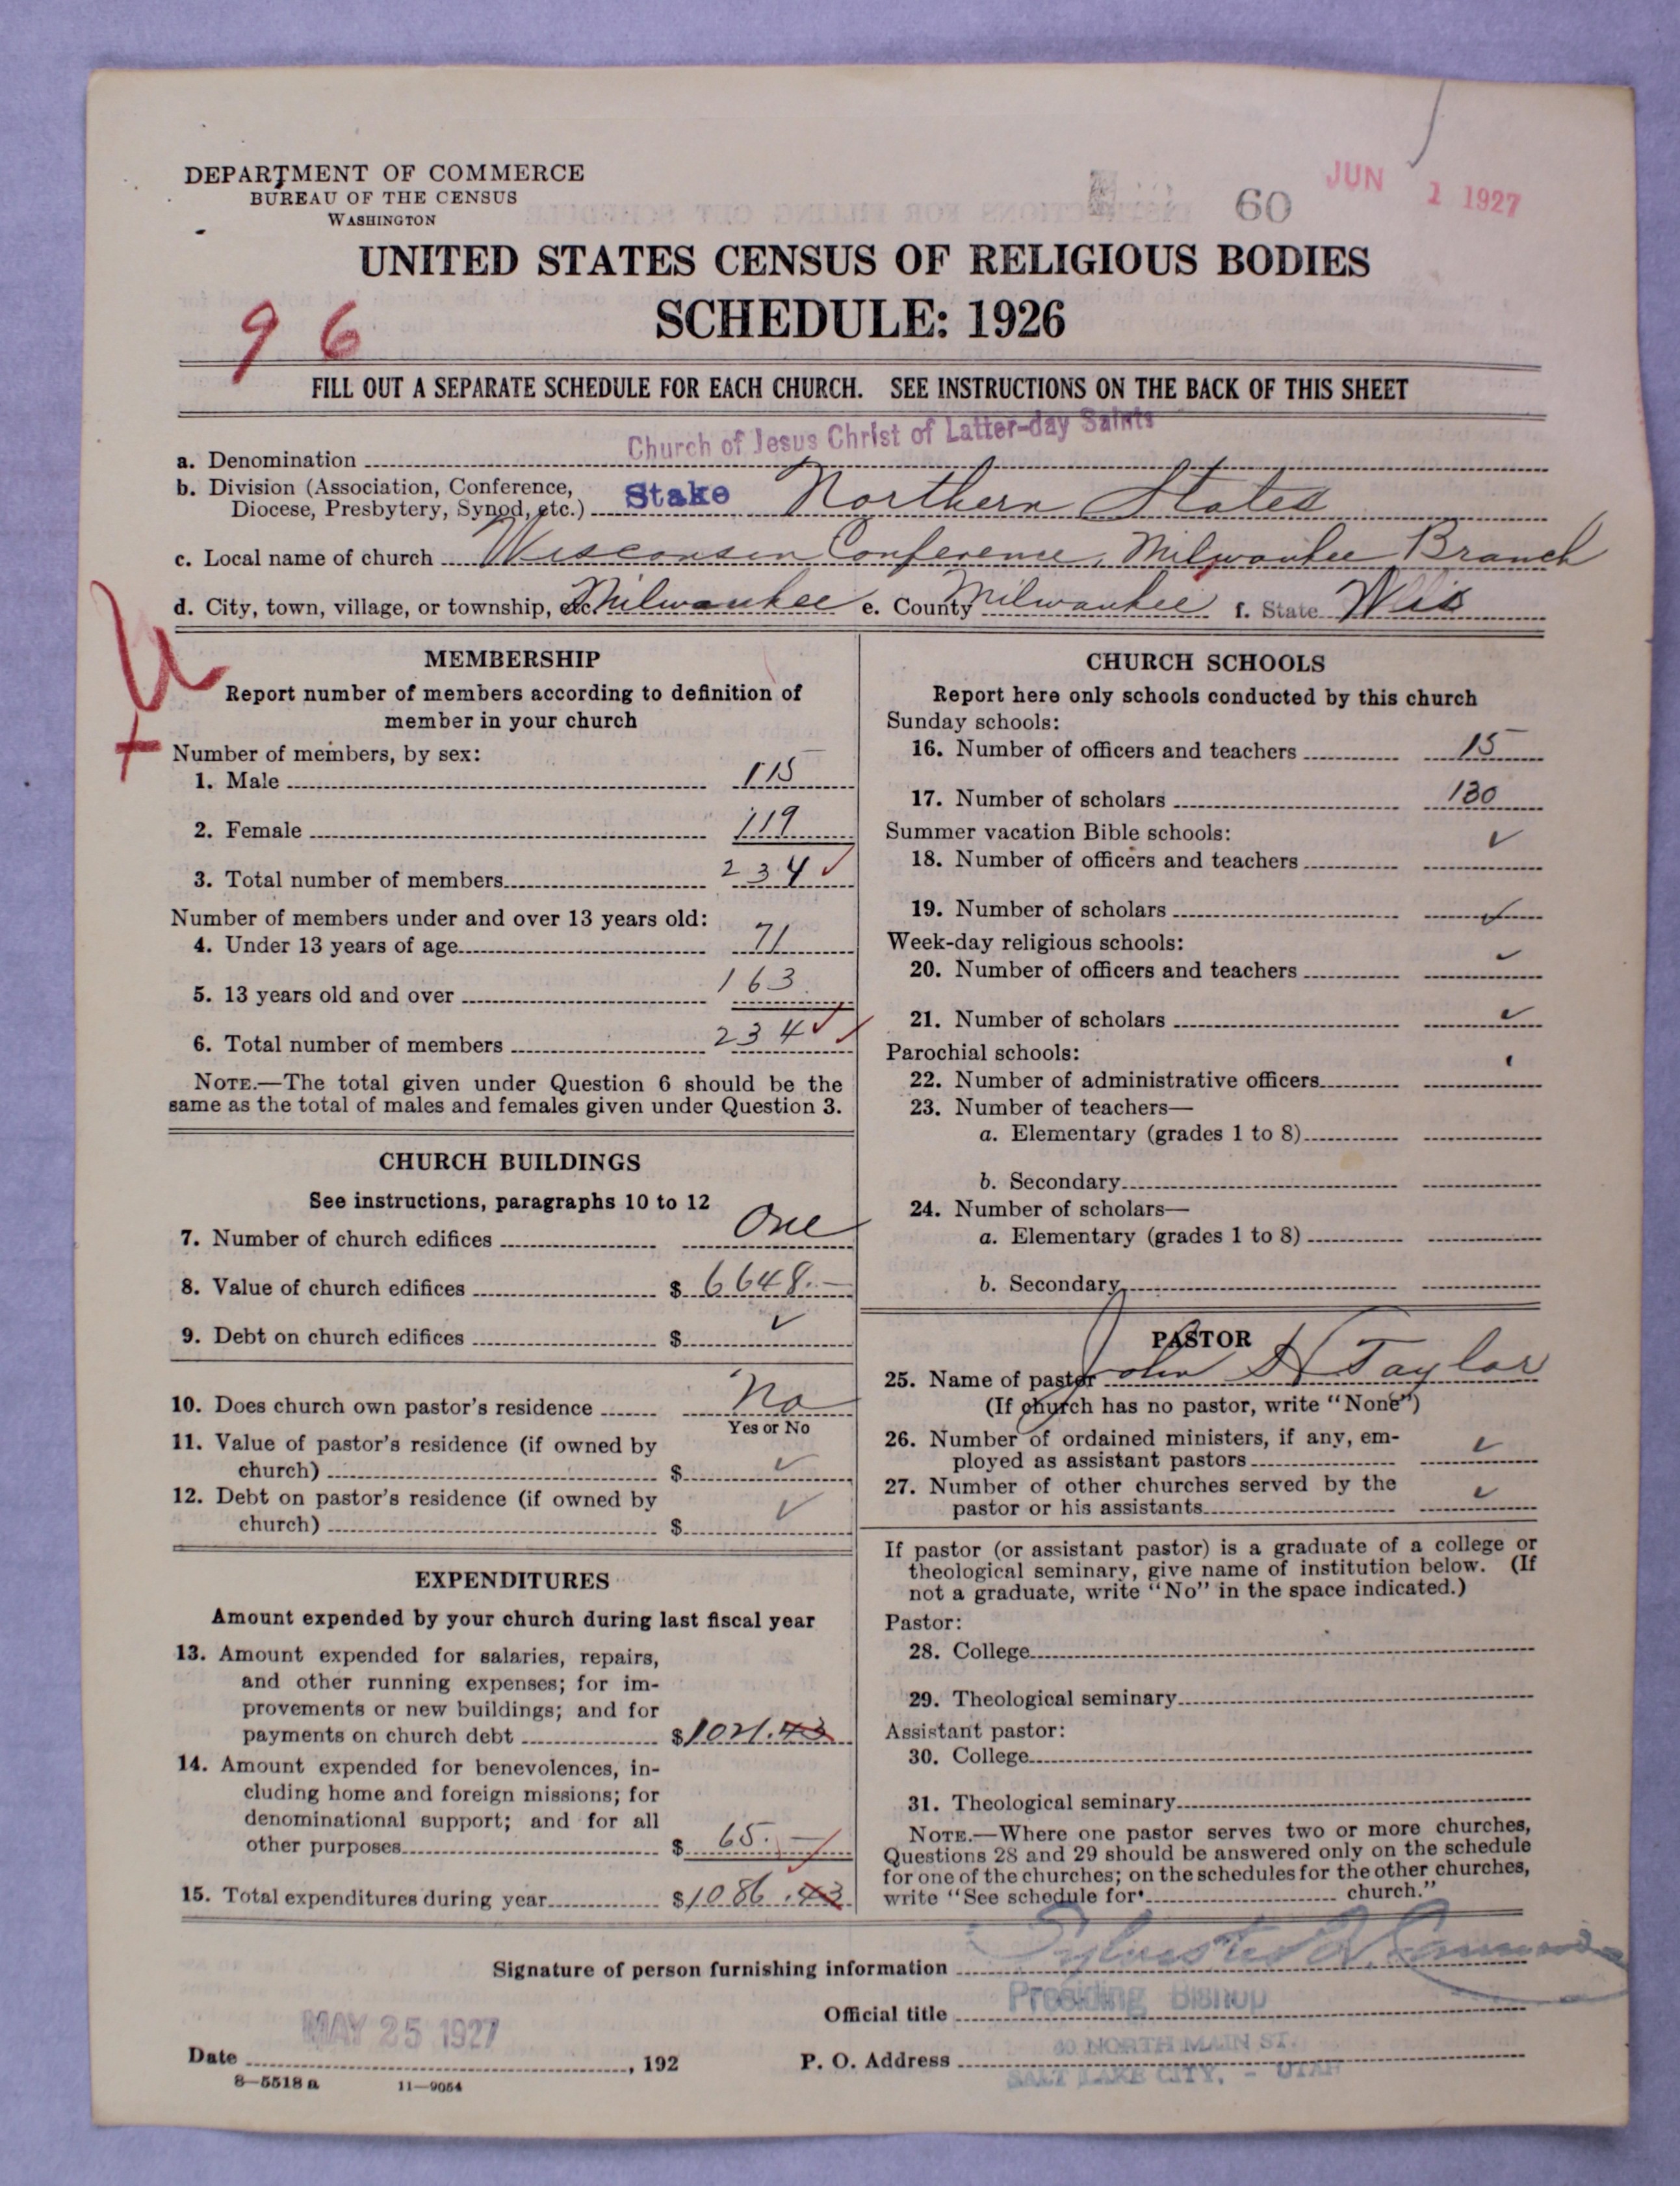 DEPARTMENT OF COMMERCE
BUREAU OF THE CENSUS
WASHINGTON
60
JUN 1 1927
UNITED STATES CENSUS OF RELIGIOUS BODIES
SCHEDULE: 1926
96
FILL OUT A SEPARATE SCHEDULE FOR EACH CHURCH. SEE INSTRUCTIONS ON THE BACK OF THIS SHEET
a. Denomination Church of Jesus Christ of Latter-day Saints
b. Division (Association, Conference, Diocese, Presbytery, Synod, etc.) Stake Northern States
c. Local name of church Wisconsin Conference, Milwaukee Branch
d. City, town, village, or township, etc. Milwaukee e. County Milwaukee f. State Wis
MEMBERSHIP
Report number of members according to definition of
member in your church
Number of members, by sex:
1. Male 115
2. Female 119
3. Total number of members 234 ✓
Number of members under and over 13 years old:
4. Under 13 years of age 71
5. 13 years old and over 163
6. Total number of members 234 ✓
NOTE.—The total given under Question 6 should be the
same as the total of males and females given under Question 3.
CHURCH BUILDINGS
See instructions, paragraphs 10 to 12
7. Number of church edifices One
8. Value of church edifices $ 6648.—
9. Debt on church edifices $ ✓
10. Does church own pastor's residence No
Yes or No
11. Value of pastor's residence (if owned by
church) $ ✓
12. Debt on pastor's residence (if owned by
church) $ ✓
EXPENDITURES
Amount expended by your church during last fiscal year
13. Amount expended for salaries, repairs,
and other running expenses; for im-
provements or new buildings; and for
payments on church debt $1021.43
14. Amount expended for benevolences, in-
cluding home and foreign missions; for
denominational support; and for all
other purposes $ 65.—
15. Total expenditures during year $1086.43
CHURCH SCHOOLS
Report here only schools conducted by this church
Sunday schools:
16. Number of officers and teachers 15
17. Number of scholars 130
Summer vacation Bible schools:
18. Number of officers and teachers ✓
19. Number of scholars ✓
Week-day religious schools:
20. Number of officers and teachers ✓
21. Number of scholars ✓
Parochial schools:
22. Number of administrative officers
23. Number of teachers—
a. Elementary (grades 1 to 8)
b. Secondary
24. Number of scholars—
a. Elementary (grades 1 to 8)
b. Secondary
PASTOR
25. Name of pastor John H Taylor
(If church has no pastor, write "None")
26. Number of ordained ministers, if any, em-
ployed as assistant pastors ✓
27. Number of other churches served by the
pastor or his assistants ✓
If pastor (or assistant pastor) is a graduate of a college or
theological seminary, give name of institution below. (If
not a graduate, write "No" in the space indicated.)
Pastor:
28. College
29. Theological seminary
Assistant pastor:
30. College
31. Theological seminary
NOTE.—Where one pastor serves two or more churches,
Questions 28 and 29 should be answered only on the schedule
for one of the churches; on the schedules for the other churches,
write "See schedule for church."
Signature of person furnishing information Sylvester Q. Cannon
Official title Presiding Bishop
Date MAY 25 1927, 192
P. O. Address 40 NORTH MAIN ST.
SALT LAKE CITY, - UTAH
8—5518 a 11—9054